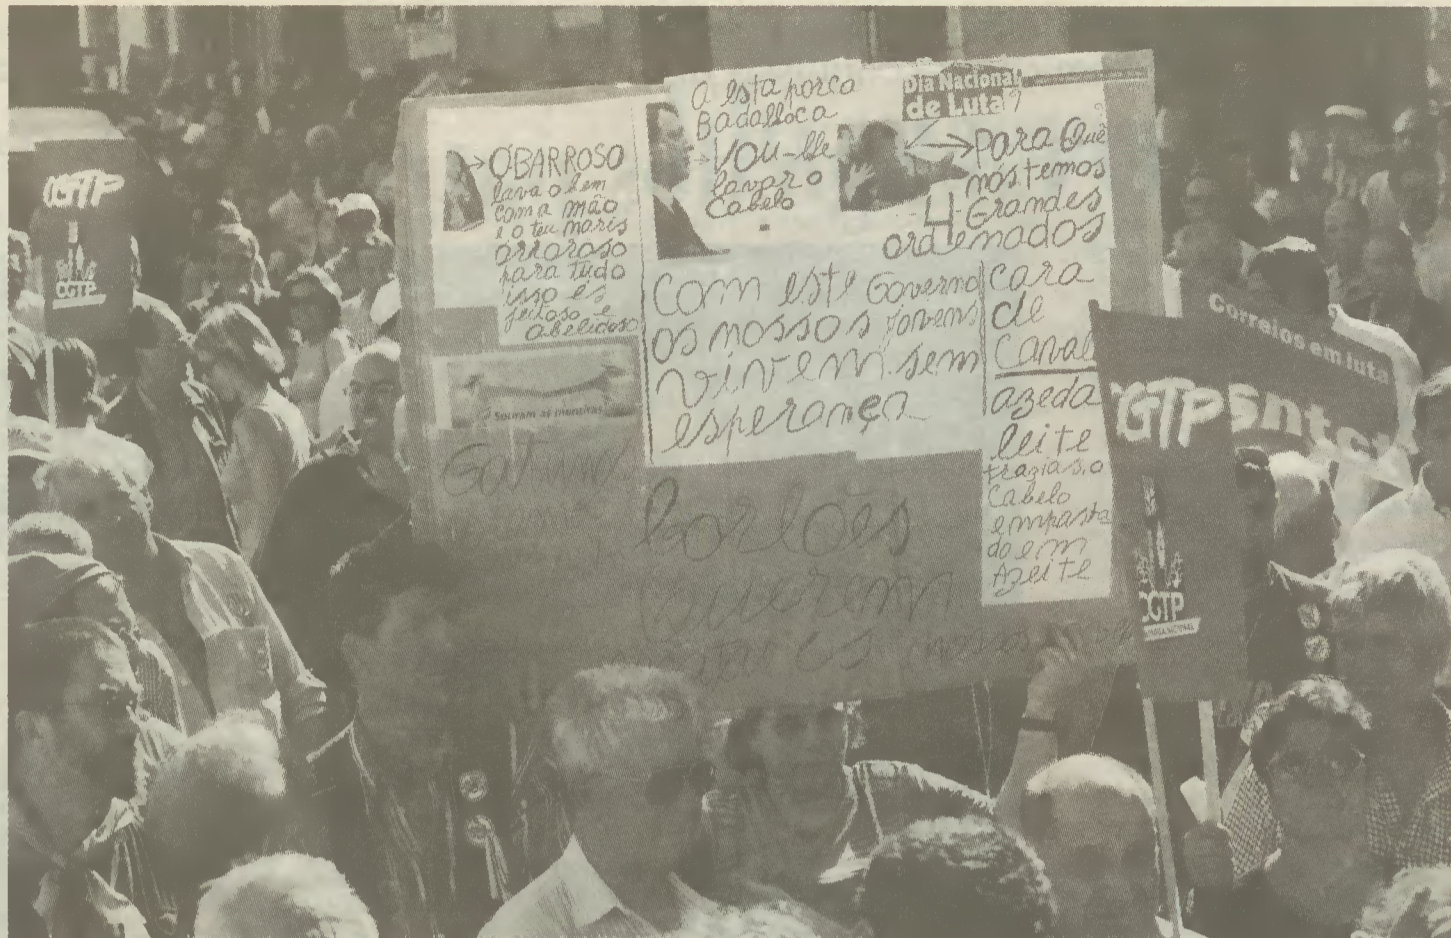 CGTP
CGTP
Ó BARROSO
lava o bem
com a mão
e o teu maris
orroroso
para tudo
isso és
jeitoso e
abelidoso
Souram as mentiras
a esta porca
Badalloca
Vou-lle
lavar o
Cabelo
Dia Nacional
de Luta
Para Quê
nós temos
4 Grandes
ordenados
Com este Governo
os nossos jovens
vivem sem
esperança
cara
de
Caval
azeda
leite
trazias.o
Cabelo
empasta
do em
Azeite
Querem
Correios em luta
CGTP
snt
CGTP